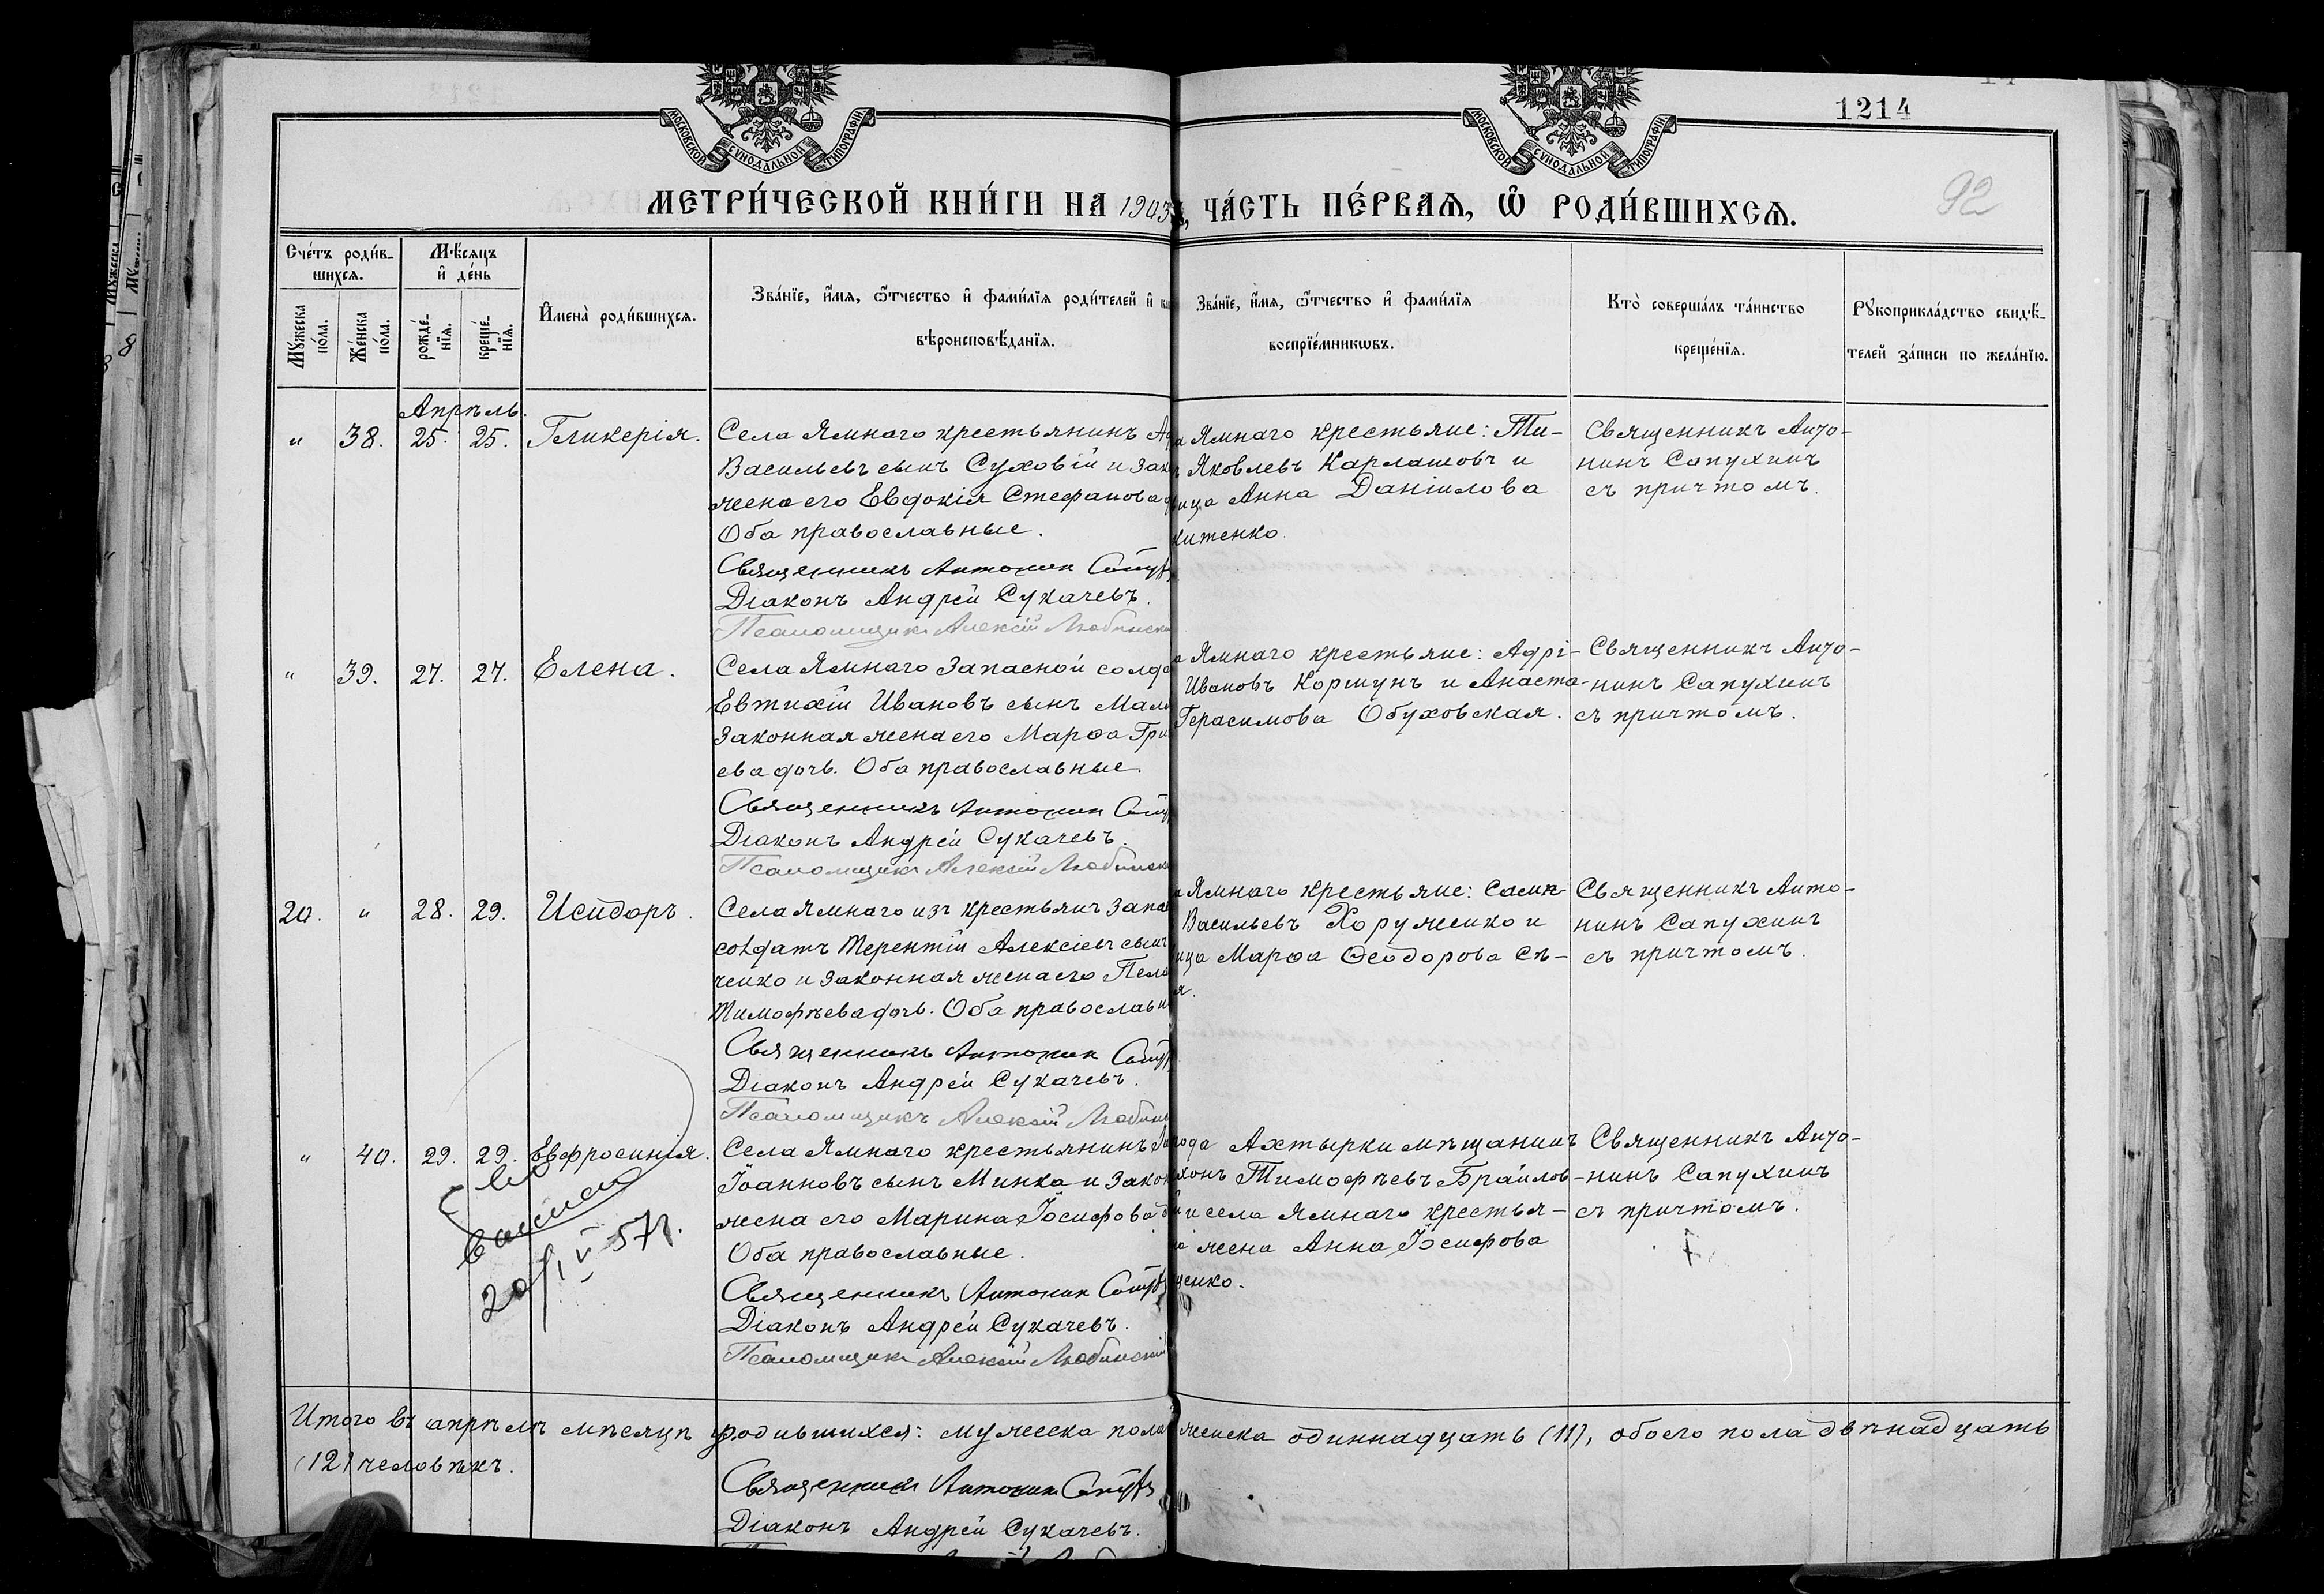 МОСКОВСКОЙ СУНОДАЛЬНОЙ ТИПОГРАФІИ
МОСКОВСКОЙ СУНОДАЛЬНОЙ ТИПОГРАФІИ
1214
92
МЕТРИ́ЧЕСКОЙ КНИ́ГИ НА 1903, ЧА́СТЬ ПЕ́РВАѦ, Ѡ҆ РОДИ́ВШИХСѦ.
Сче́тъ роди́в-
шихсѧ.
Мѣ́сѧцъ
и҆ де́нь
Мꙋ́жеска
по́ла.
Же́нска
по́ла.
рожде́-
нїѧ.
креще́-
нїѧ.
И҆мена̀ роди́вшихсѧ.
Зва́нїе, и҆́мѧ, ѻ҆́тчество и҆ фами́лїѧ роди́телей и҆
вѣроисповѣ́данїѧ.
Зва́нїе, и҆́мѧ, ѻ҆́тчество и҆ фами́лїѧ
воспрїе́мникѡвъ.
Кто̀ соверша́лъ та́инство
креще́нїѧ.
Рꙋкоприкла́дство свидѣ́-
телей за́писи по жела́нїю.
Апрѣль.
" 38. 25. 25. Гликерія.
Села Ямнаго крестьянинъ
Васильевъ сынъ Суховій и зак
жена его Евдокія Стефанова
Оба православные.
Священникъ Антонин
Діаконъ Андрей Сукачевъ.
Псаломщикъ Алексій Любинск
Ямнаго крестьяне: Ти-
Яковлевъ Карлашовъ и
вица Анна Даніилова
китенко.
Священникъ Анто-
нинъ Сапухинъ
съ причтомъ.
" 39. 27. 27. Елена.
Села Ямнаго запасной солда
Евтихій Ивановъ сынъ Мал
законная жена его Марѳа Гри
ева дочь. Оба православные.
Священникъ Антонин
Діаконъ Андрей Сукачевъ.
Псаломщикъ Алексій Любинск
Ямнаго крестьяне: Адрі-
Ивановъ Коршунъ и Анаста-
Герасимова Обуховская.
Священникъ Анто-
нинъ Сапухинъ
съ причтомъ.
20. " 28. 29. Исидоръ.
Села Ямнаго изъ крестьянъ запа
солдатъ Терентій Алексіевъ сынъ
ченко и законная жена его Пела
Тимофѣева дочь. Оба православн
Священникъ Антонин
Діаконъ Андрей Сукачевъ.
Псаломщикъ Алексій Любин
Ямнаго крестьяне:
Васильевъ Хоруженко и
ица Марѳа Ѳеодорова Сѣ-
я.
Священникъ Анто-
нинъ Сапухинъ
съ причтомъ.
" 40. 29. 29. Евфросинія.
Села Ямнаго крестьянинъ
Іоанновъ сынъ Минка и закон
жена его Марина Іосифова
Оба православные.
Священникъ Антонин
Діаконъ Андрей Сукачевъ.
Псаломщикъ Алексій Любинскій
рода Ахтырки мѣщанинъ
хонъ Тимофѣевъ Браилов-
и села Ямнаго крестья-
жена Анна Іосифова
ченко.
Священникъ Анто-
нинъ Сапухинъ
съ причтомъ.
57г.
Итого въ апрѣлѣ мѣсяцѣ родившихся: мужеска пола женска одиннадцать (11), обоего пола двѣнадцать
(12) человѣкъ.
Священникъ Антонин
Діаконъ Андрей Сукачевъ.